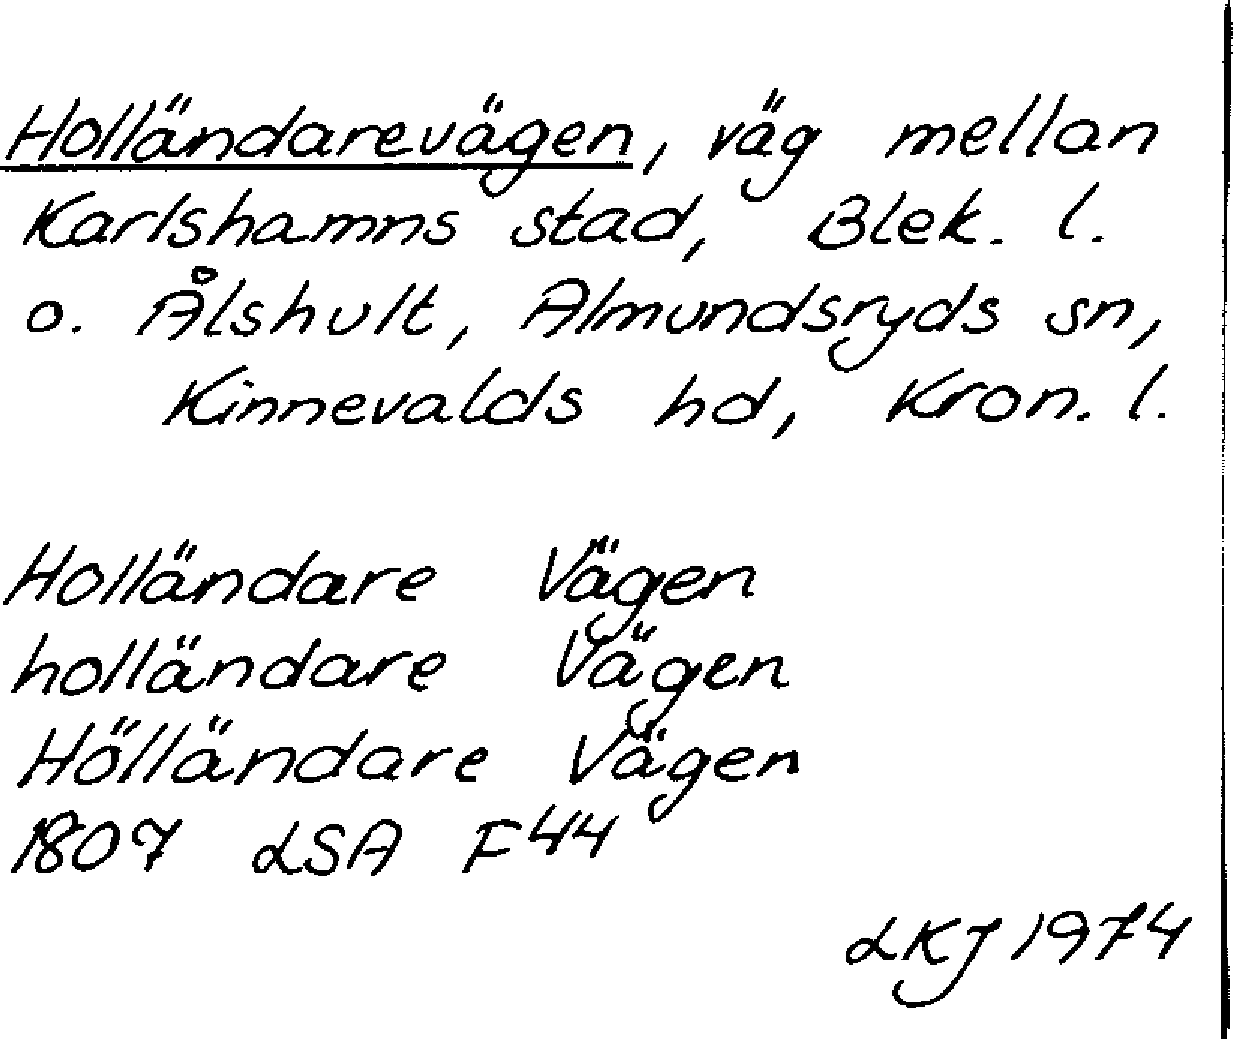 Holländarevägen, väg mellan
Karlshamns stad, Blek. l.
o. Ålshult, Almundsryds sn,
Kinnevalds hd, Kron. l.
Holländare Vägen
holländare Vägen
Hölländare Vägen
1807 LSA F44
LKJ 1974